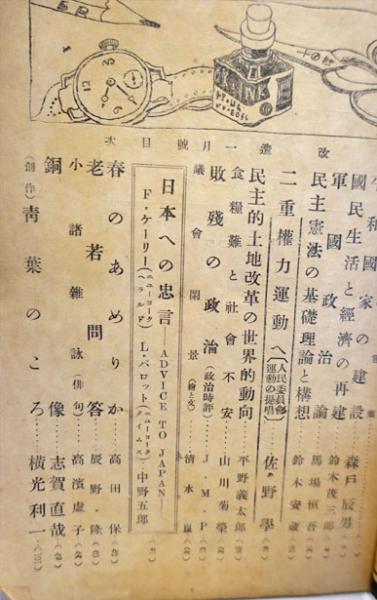 改造 一月號 目次
平和國家の建設……森戸辰男
國民生活と經濟の再建……鈴木茂三郎
軍國政治論……馬場恒吾
民主憲法の基礎理論と構想……鈴木安藏
二重權力運動へ(人民委員會運動の提唱)……佐野學
民主的土地改革の世界的動向……平野義太郎
食糧難と社會不安……山川菊榮
敗殘の政治(政治時評)……J・M・P
議會闇景(繪と文)……清水崑
日本への忠言—ADVICE TO JAPAN—
F・ケーリー(ニューヨークヘラルド) L・バロット(ニューヨークタイムス) 中野五郎
春のあめりか……高田保
老若問答……辰野・隆
小諸雜詠(俳句)……高濱虚子
銅像……志賀直哉
(創作)青葉のころ……横光利一
INK